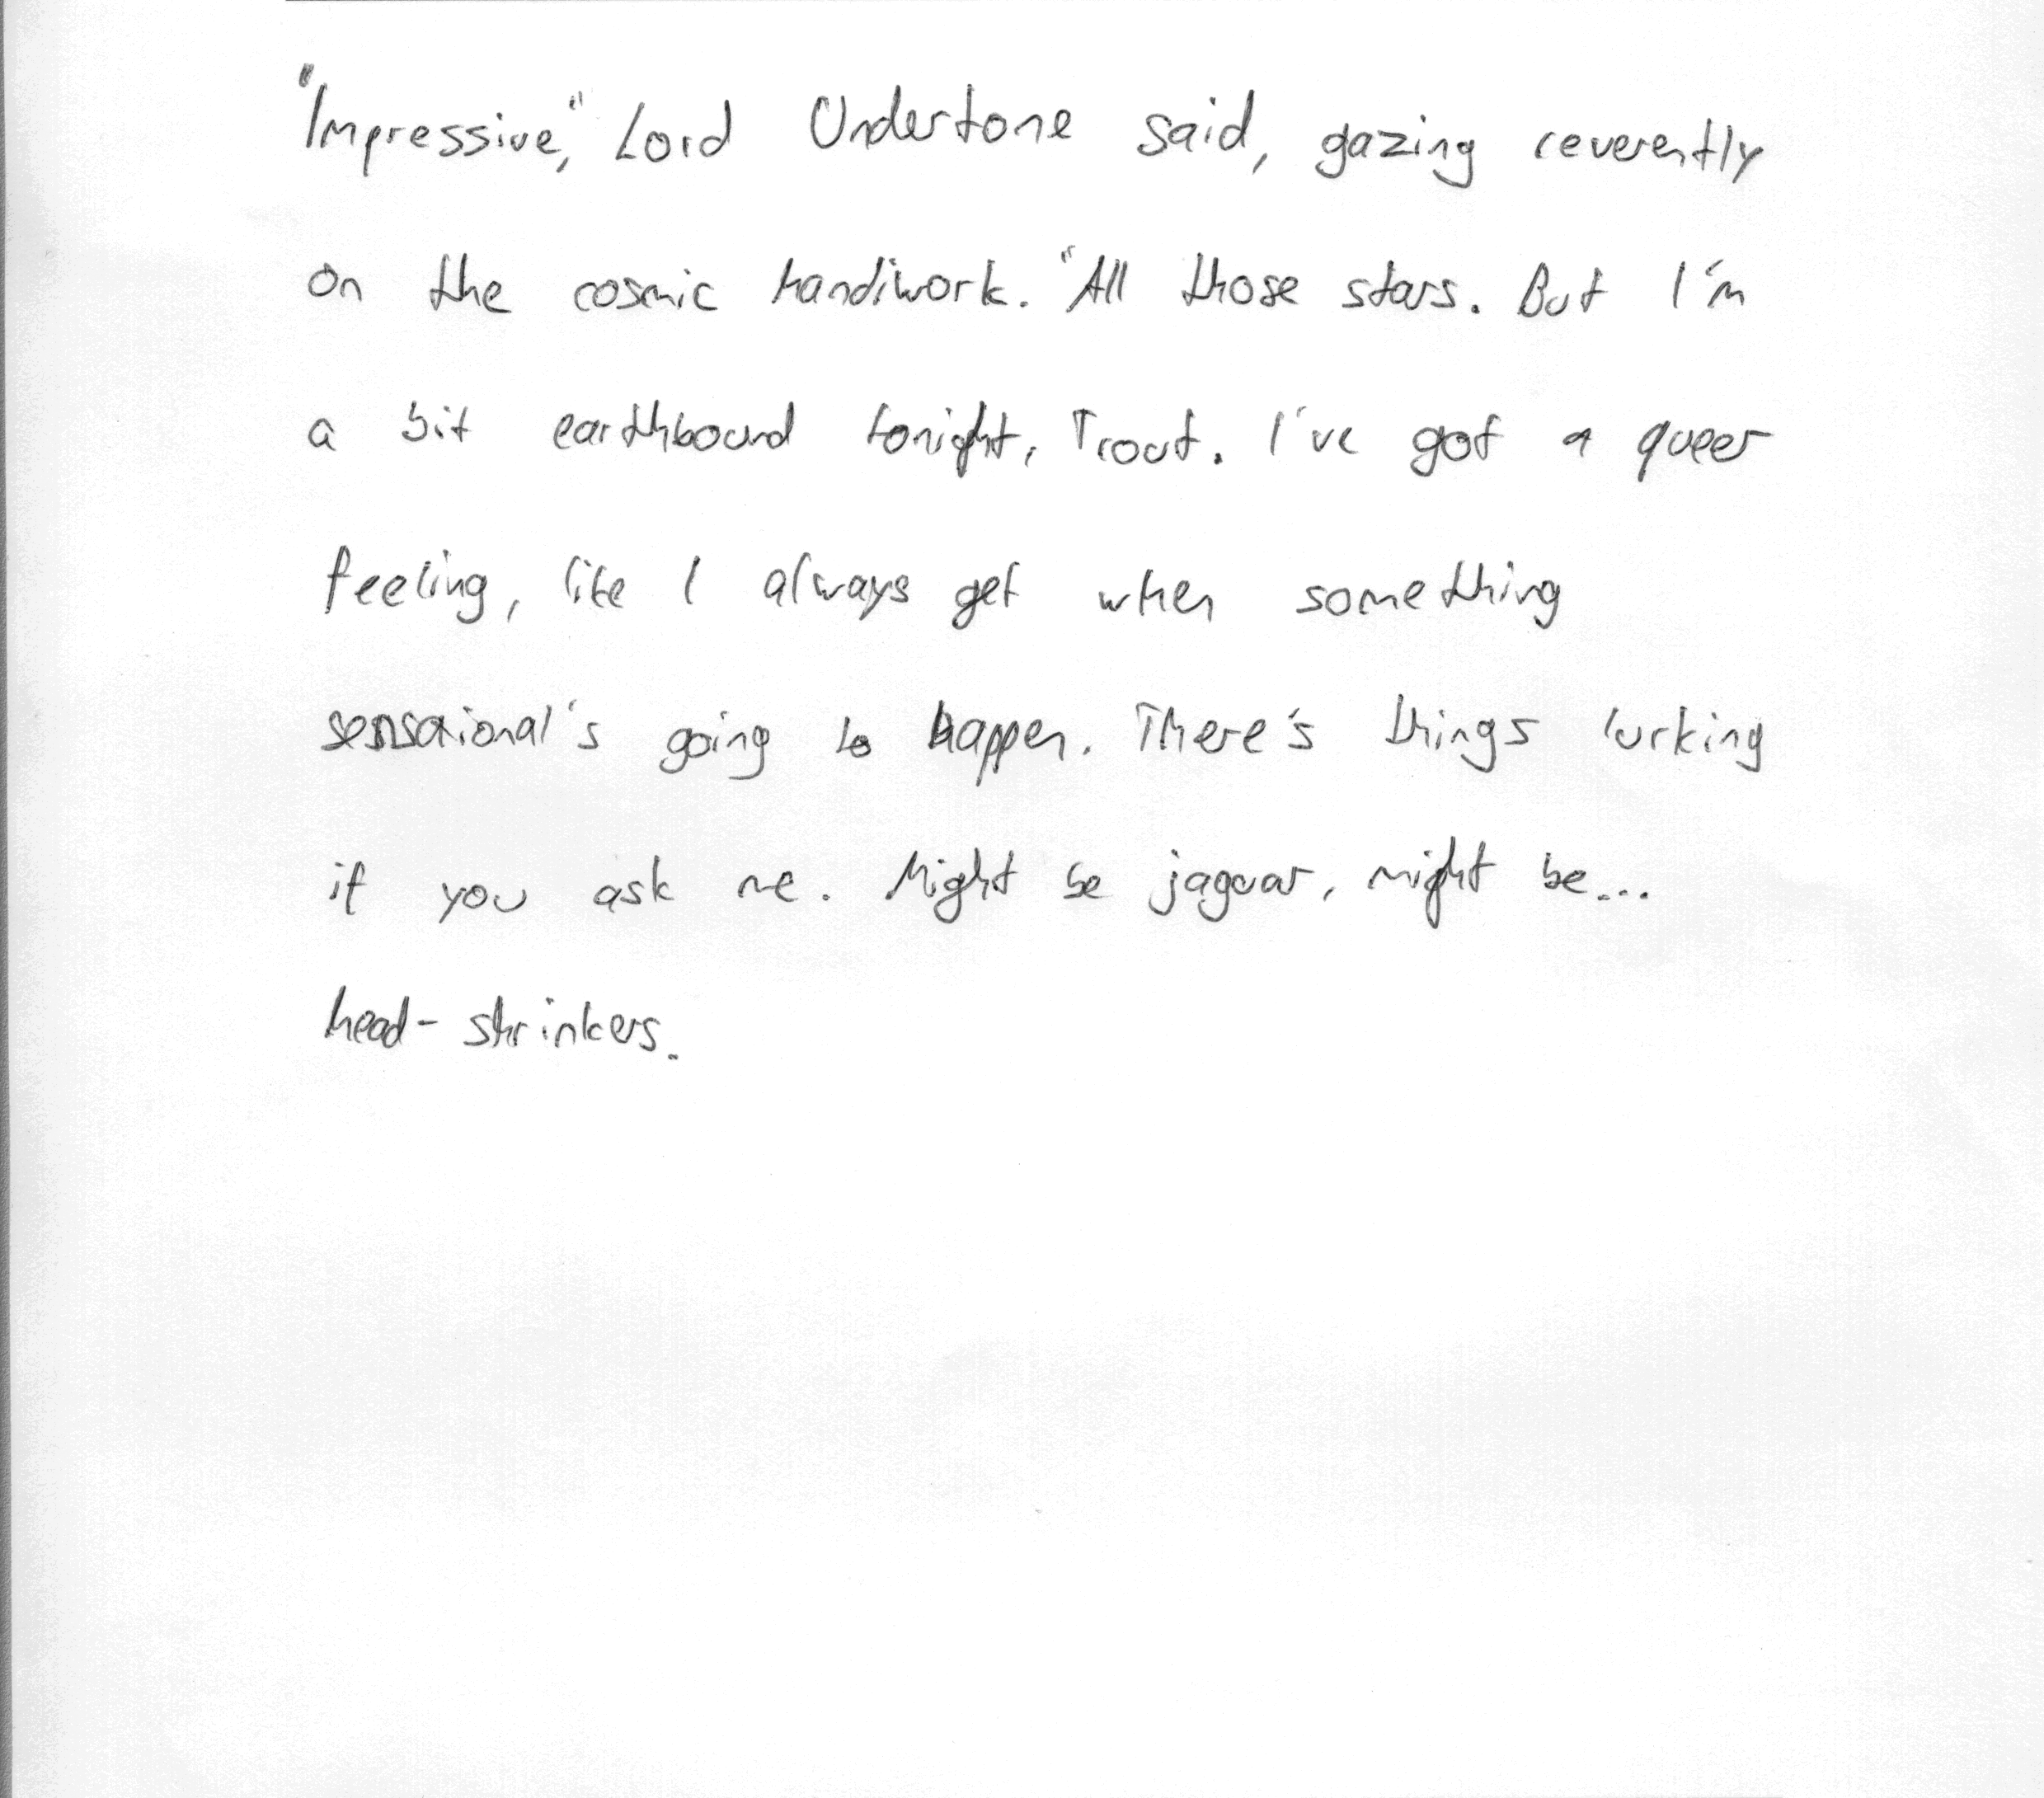 "Impressive," Lord Undertone said, gazing reverently
on the cosmic handiwork. "All those stars. But I'm
a bit earthbound tonight, Trout. I've got a queer
feeling, like I always get when something
sensational's going to happen. There's things lurking
if you ask me. Might be jaguar, might be...
head-shrinkers.